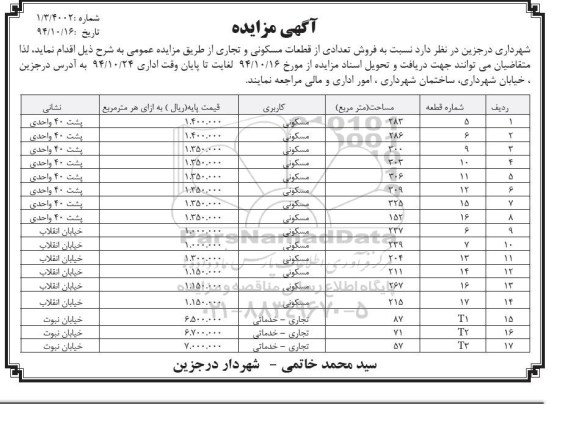 شماره :۱/۳/۴۰۰۲
تاریخ :۹۴/۱۰/۱۶
آگهی مزایده
شهرداری درجزین در نظر دارد نسبت به فروش تعدادی از قطعات مسکونی و تجاری از طریق مزایده عمومی به شرح ذیل اقدام نماید، لذا
متقاضیان می توانند جهت دریافت و تحویل اسناد مزایده از مورخ ۹۴/۱۰/۱۶ لغایت تا پایان وقت اداری ۹۴/۱۰/۲۴ به آدرس درجزین
، خیابان شهرداری، ساختمان شهرداری ، امور اداری و مالی مراجعه نمایند.
ردیف شماره قطعه مساحت(متر مربع) کاربری قیمت پایه(ریال ) به ازای هر مترمربع نشانی
۱ ۵ ۲۸۳ مسکونی ۱،۴۰۰،۰۰۰ پشت ۴۰ واحدی
۲ ۶ ۲۸۶ مسکونی ۱،۴۰۰،۰۰۰ پشت ۴۰ واحدی
۳ ۹ ۳۰۰ مسکونی ۱،۳۵۰،۰۰۰ پشت ۴۰ واحدی
۴ ۱۰ ۳۰۳ مسکونی ۱،۳۵۰،۰۰۰ پشت ۴۰ واحدی
۵ ۱۱ ۳۰۶ مسکونی ۱،۳۵۰،۰۰۰ پشت ۴۰ واحدی
۶ ۱۲ ۳۰۹ مسکونی ۱،۳۵۰،۰۰۰ پشت ۴۰ واحدی
۷ ۱۵ ۳۲۵ مسکونی ۱،۳۵۰،۰۰۰ پشت ۴۰ واحدی
۸ ۱۶ ۱۵۲ مسکونی ۱،۳۵۰،۰۰۰ پشت ۴۰ واحدی
۹ ۶ ۲۳۷ مسکونی ۱،۰۰۰،۰۰۰ خیابان انقلاب
۱۰ ۷ ۲۳۹ مسکونی ۱،۰۰۰،۰۰۰ خیابان انقلاب
۱۱ ۱۳ ۲۰۴ مسکونی ۱،۳۰۰،۰۰۰ خیابان انقلاب
۱۲ ۱۴ ۲۱۱ مسکونی ۱،۱۵۰،۰۰۰ خیابان انقلاب
۱۳ ۱۶ ۲۶۷ مسکونی ۱،۱۵۰،۰۰۰ خیابان انقلاب
۱۴ ۱۷ ۲۱۵ مسکونی ۱،۱۵۰،۰۰۰ خیابان انقلاب
۱۵ T۱ ۸۷ تجاری - خدماتی ۶،۵۰۰،۰۰۰ خیابان نبوت
۱۶ T۲ ۷۱ تجاری - خدماتی ۶،۷۰۰،۰۰۰ خیابان نبوت
۱۷ T۳ ۵۷ تجاری - خدماتی ۷،۰۰۰،۰۰۰ خیابان نبوت
ParsNamadData
پایگاه اطلاع رسانی مناقصه و مزایده
۰۲۱-۸۸۳۴۹۶۷۰-۵
سید محمد خاتمی - شهردار درجزین